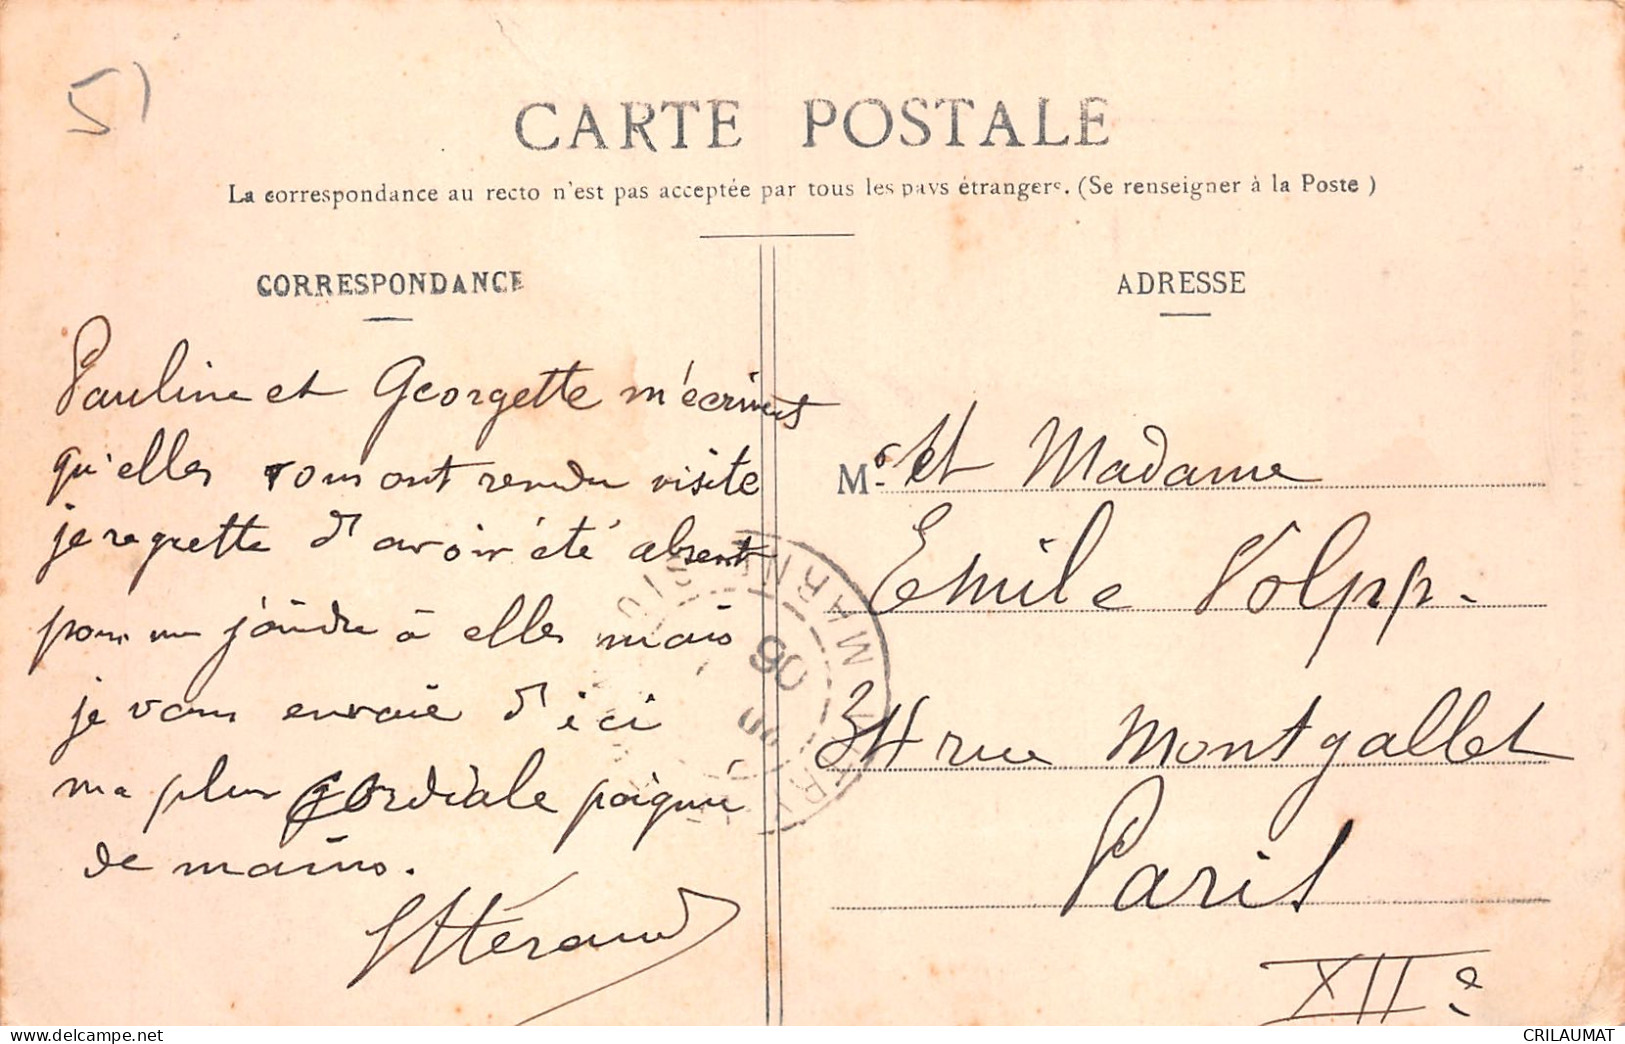 51
CARTE POSTALE
La correspondance au recto n'est pas acceptée par tous les pays étrangers. (Se renseigner à la Poste )
CORRESPONDANCE
Pauline et Georgette m'écrivent
qu'elles vous ont rendu visite
je regrette d'avoir été absent
pour me joindre à elles mais
je vous envoie d'ici
ma plus cordiale poignée
de mains.
Héraud
ADRESSE
M. et Madame
Emile Volpp.
34 rue Montgallet
Paris
XIIe
MARNE
06
delcampe.net
CRILAUMAT